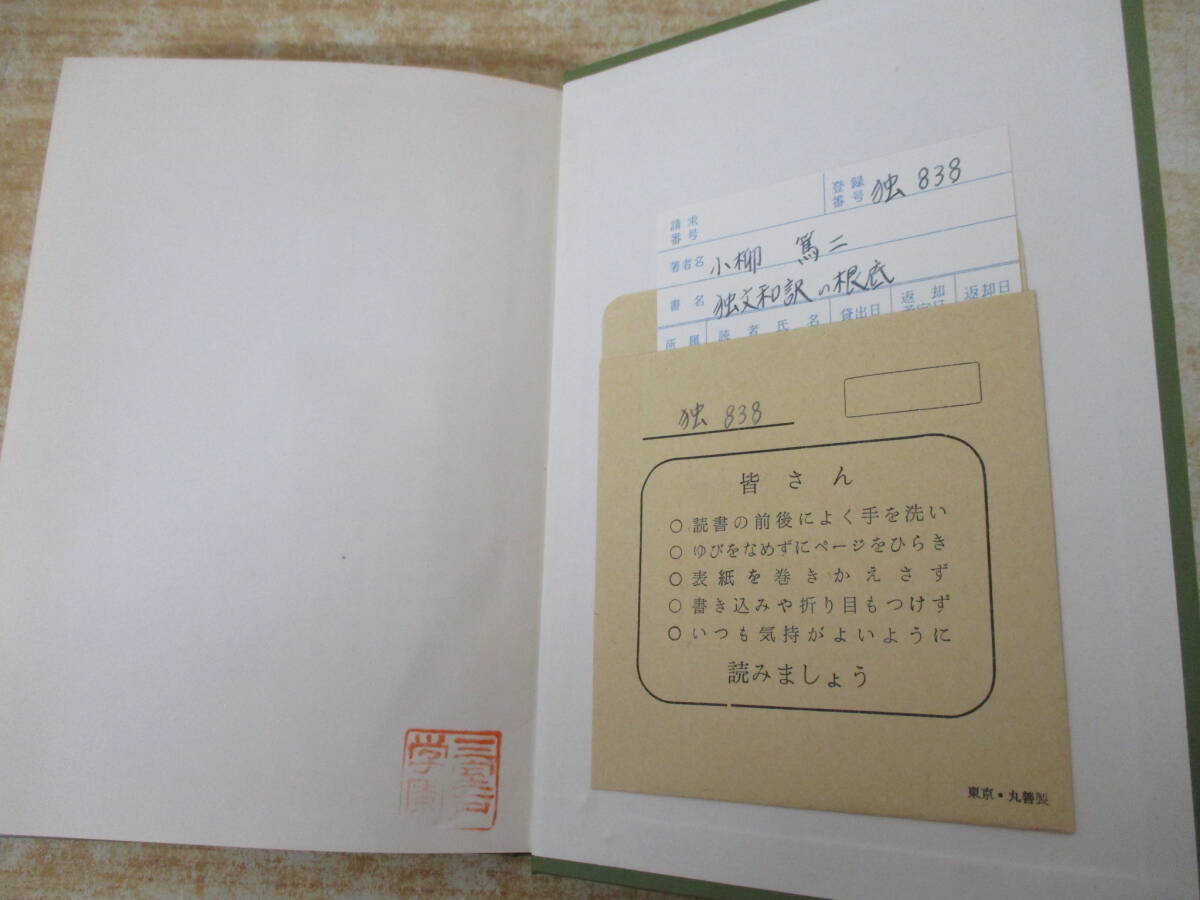 請求番号
登録番号 独 838
著者名 小柳 篤二
書名 独文和訳の根底
所属 読者氏名 貸出日 返却予定日 返却日
独 838
皆さん
○ 読書の前後によく手を洗い
○ ゆびをなめずにページをひらき
○ 表紙を巻きかえさず
○ 書き込みや折り目もつけず
○ いつも気持がよいように
読みましょう
東京・丸善製